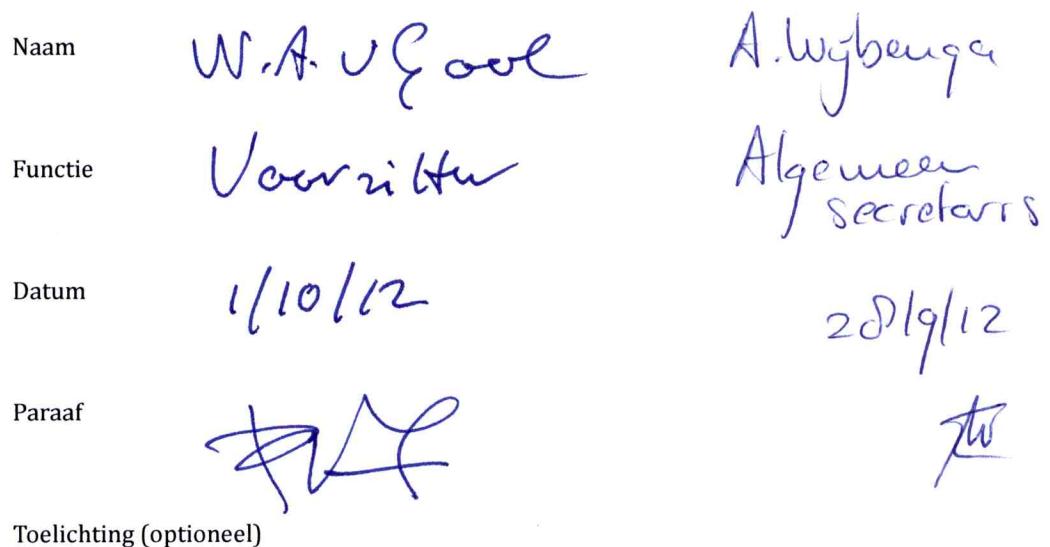 Naam W.A. v Gool A. Wijbenga
Functie Voorzitter Algemeen
secretaris
Datum 1/10/12 28/9/12
Paraaf
Toelichting (optioneel)